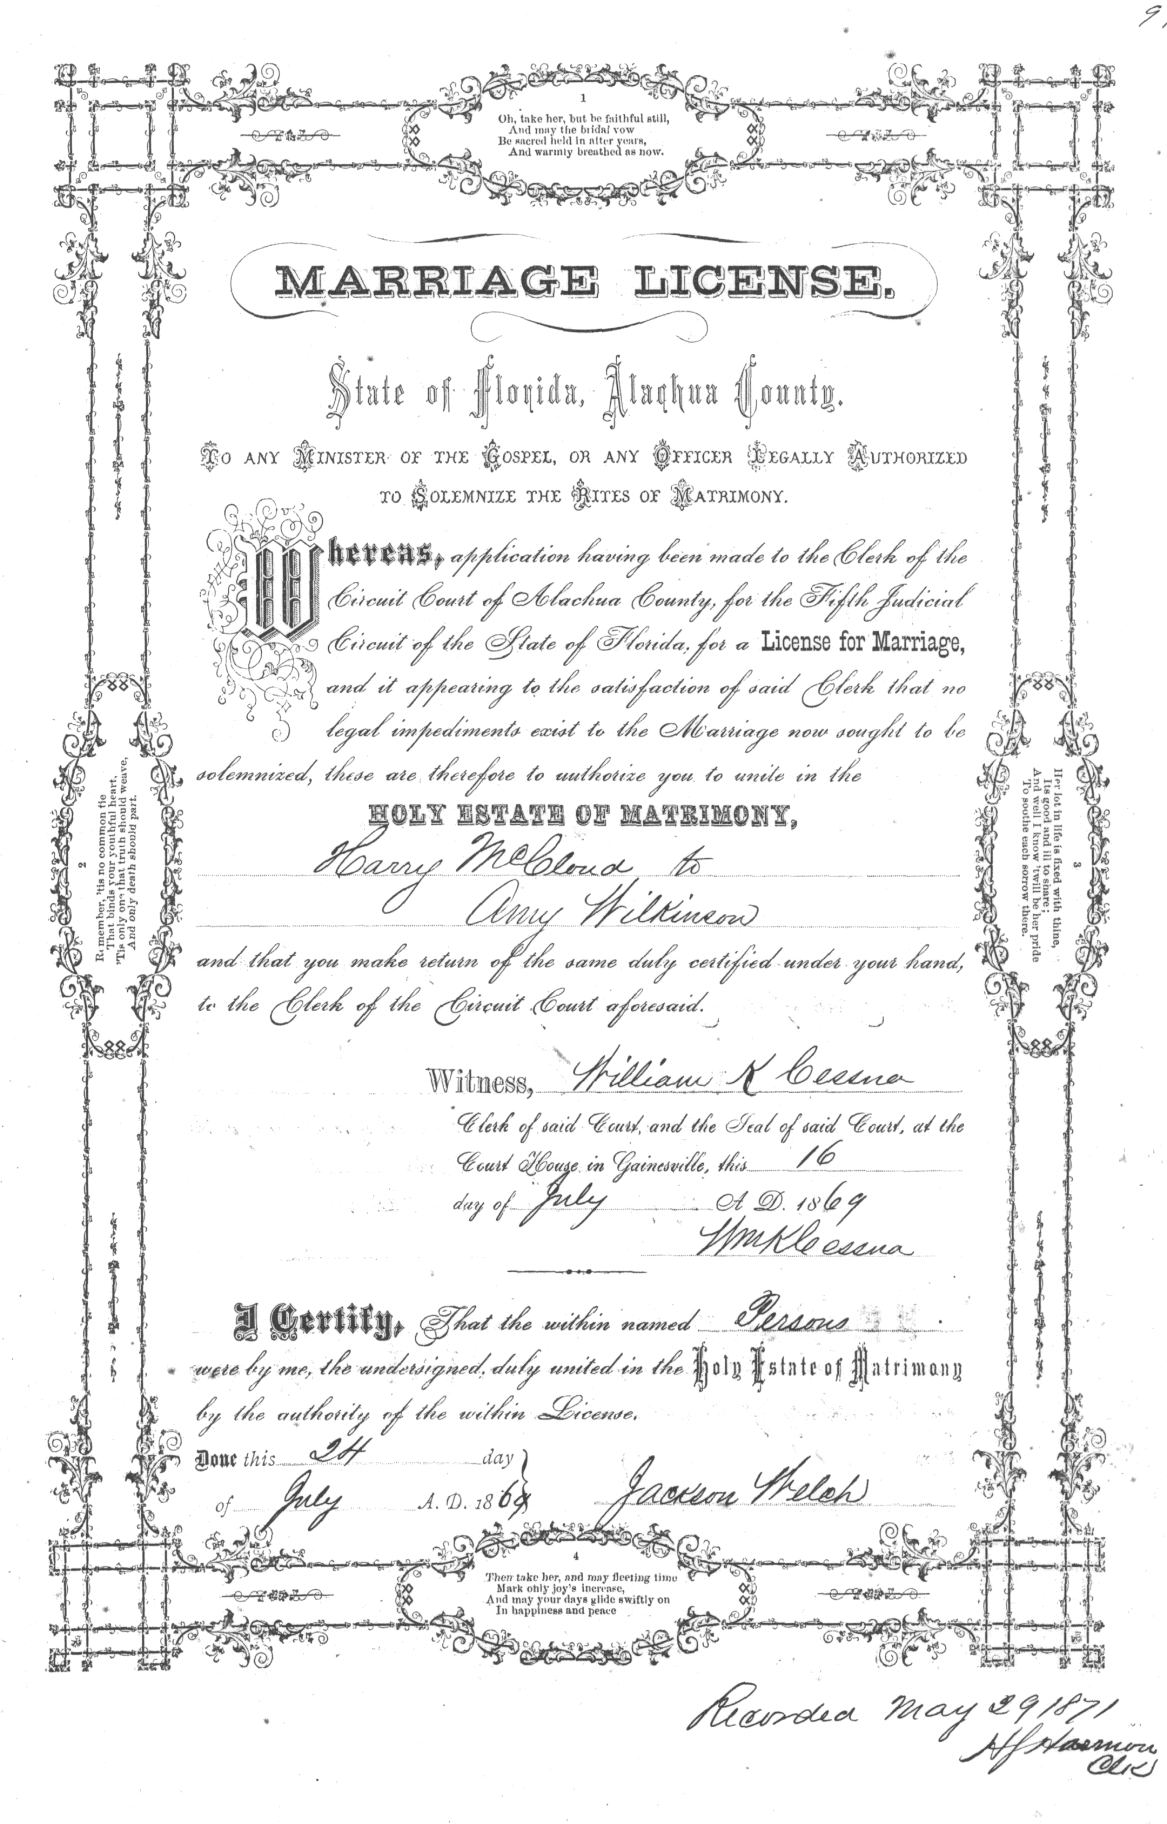 1
Oh, take her, but be faithful still,
And may the bridal vow
Be sacred held in after years,
And warmly breathed as now.
MARRIAGE LICENSE.
State of Florida, Alachua County.
To any Minister of the Gospel, or any Officer Legally Authorized
to Solemnize the Rites of Matrimony.
Whereas, application having been made to the Clerk of the
Circuit Court of Alachua County, for the Fifth Judicial
Circuit of the State of Florida, for a License for Marriage,
and it appearing to the satisfaction of said Clerk that no
legal impediments exist to the Marriage now sought to be
solemnized, these are therefore to authorize you to unite in the
HOLY ESTATE OF MATRIMONY,
Harry McCloud to
Amy Wilkinson
and that you make return of the same duly certified under your hand,
to the Clerk of the Circuit Court aforesaid.
Witness, William K Cessna
Clerk of said Court, and the Seal of said Court, at the
Court House in Gainesville, this 16
day of July A D. 1869
Wm K Cessna
I Certify, That the within named Persons
were by me, the undersigned, duly united in the Holy Estate of Matrimony
by the authority of the within License.
Done this 24 day
of July A. D. 1869 Jackson Welch
2
Remember, 'tis no common tie
That binds your youthful heart,
'Tis only one that truth should weave,
And only death should part.
3
Her lot in life is fixed with thine,
Its good and ill to share;
And well I know 'twill be her pride
To soothe each sorrow there.
4
Then take her, and may fleeting time
Mark only joy's increase,
And may your days glide swiftly on
In happiness and peace
Recorded May 29 1871
H J Harmon
Clk